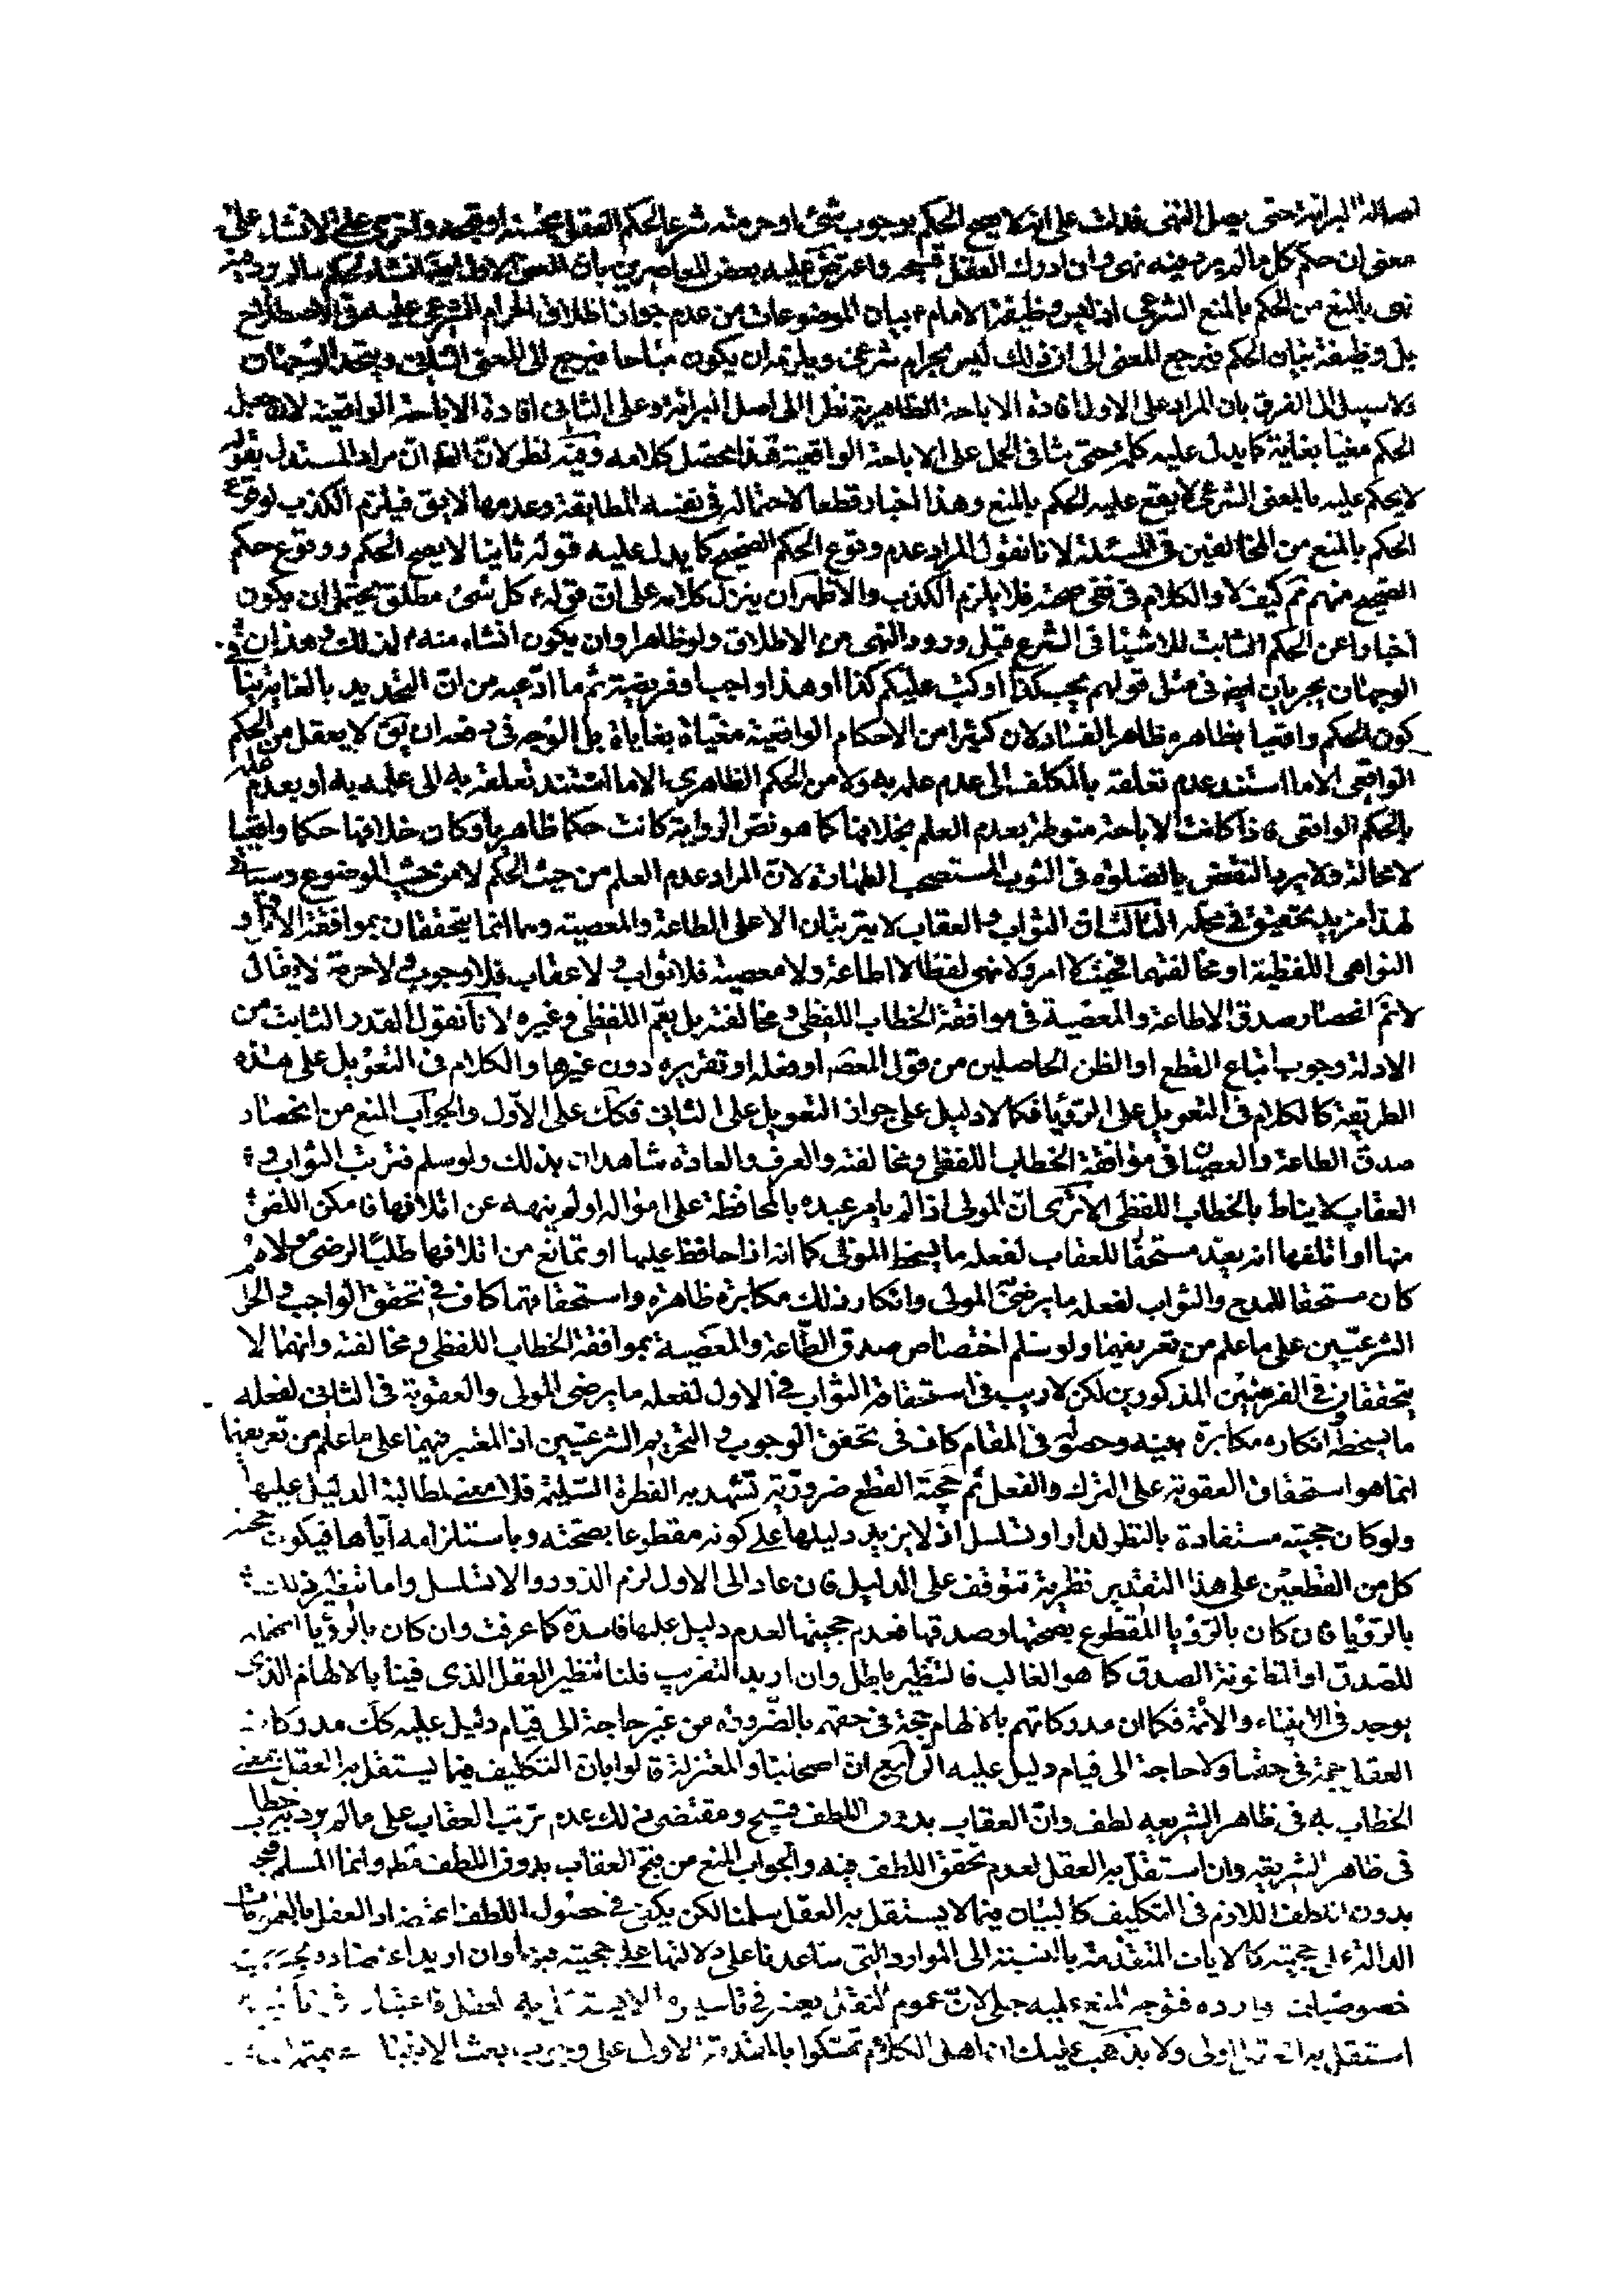 اصالة البرائة حتى يصل النهى فدلت على انه لا يصح الحكم بوجوب شئ او حرمته شرعا لحكم العقل بحسنه او قبحه واخرى على الانشاء على
معنى ان حكم كل ما لم يرد فيه نهى وان ادرك العقل قبحه واعترض عليه بعض المعاصرين بان المعنى الاول ايضا انشاء لحكم ما لم يرد فيه
نهى بالمنع من الحكم بالمنع الشرعى اذ ليس وظيفة الامام ع بيان الموضوعات من عدم جواز اطلاق الحرام الشرعى عليه فى الاصطلاح
بل وظيفة بيان الحكم فيرجع المعنى الى ان ذلك ليس بحرام شرعى ويلزمه ان يكون مباحا فيرجع الى المعنى الثانى ويتحد الوجهان
ولا سبيل الى الفرق بان المراد على الاول افادة الاباحة الظاهرية نظرا الى اصل البرائة وعلى الثانى افادة الاباحة الواقعية لانه جعل
الحكم مغيا بغاية كما يدل عليه كلمة حتى ينافى الحمل على الاباحة الواقعية هذا محصل كلامه وفيه نظر لان الظ ان مراد المستدل بقوله
لا يحكم عليه بالمعنى الشرعى لا يقع عليه الحكم بالمنع وهذا اخبار قطعا لاحتماله فى نفسه المطابقة وعدمها لا يق فيلزم الكذب لوقوع
الحكم بالمنع من المخالفين فى المسئلة لانا نقول المراد عدم وقوع الحكم الصحيح كما يدل عليه قوله ثانيا لا يصح الحكم ووقوع حكم
الصحيح منهم مم كيف لا والكلام فى نفى صحته فلا يلزم الكذب والاظهر ان ينزل كلامه على ان قوله ع كل شئ مطلق يحتمل ان يكون
اخبارا عن الحكم الثابت للاشيا فى الشرع قبل ورود النهى من الاطلاق ولو ظاهرا وان يكون انشاء منه ع لذلك وهذان
الوجهان يجريان ايض فى مثل قولهم يجب كذا او كتب عليكم كذا او هذا واجب او فريضة ثم ما ادعيه من ان التحديد بالغاية ينافى
كون الحكم واقعيا بظاهره ظاهر الفساد لان كثيرا من الاحكام الواقعية مغياة بغاياة بل الوجه فى دفعه ان يق لا يعقل من الحكم
الواقعى الا ما استند عدم تعلقه بالمكلف الى عدم علمه به ولا من الحكم الظاهرى الا ما استند تعلقه به الى علمه به او بعدم علمه
بالحكم الواقعى فاذا كانت الاباحة منوطة بعدم العلم بخلافها كما هو نص الرواية كانت حكما ظاهريا وكان خلافها حكما واقعيا
لا محالة ولا يرد النقض بالصلوة فى الثوب المستصحب الطهارة لان المراد عدم العلم من حيث الحكم لا من حيث الموضوع وسياتى
لهذا مزيد تحقيق فى محله الثالث ان الثواب والعقاب لا يترتبان الا على الطاعة والمعصية وهما انما يتحققان بموافقة الاوامر و
النواهى اللفظية او مخالفتهما فحيث لا امر ولا نهى لفظا لا اطاعة ولا معصية فلا ثواب ولا عقاب فلا وجوب ولا حرمة لا يقال
لا نم انحصار صدق الاطاعة والمعصية فى موافقة الخطاب اللفظى ومخالفته بل يعم اللفظى وغيره لانا نقول القدر الثابت من
الادلة وجوب اتباع القطع او الظن الحاصلين من قول المعصوم او فعله او تقريره دون غيرها والكلام فى التعويل على هذه
الطريقة كالكلام فى التعويل على الرؤيا فكما لا دليل على جواز التعويل على الثانى فكك على الاول والجواب المنع من انحصار
صدق الطاعة والعصيان فى موافقة الخطاب اللفظى ومخالفته والعرف والعادة شاهدان بذلك ولو سلم فترتب الثواب و
العقاب لا يناط بالخطاب اللفظى الا ترى ان المولى اذا لم يامر عبده بالمحافظة على امواله او لم ينهه عن اتلافها فامكن اللص
منها او اتلفها انه يعد مستحقا للعقاب لفعله ما يسخط المولى كما انه اذا حافظ عليها او تمانع من اتلافها طلبا لرضى مولاه
كان مستحقا للمدح والثواب لفعله ما يرضى المولى وانكار ذلك مكابرة ظاهرة واستحقاقهما كاف فى تحقق الواجب والحرام
الشرعيين على ما علم من تعريفهما ولو سلم اختصاص صدق الطاعة والمعصية بموافقة الخطاب اللفظى ومخالفته وانهما لا
يتحققان فى الفرضين المذكورين لكن لا ريب فى استحقاق الثواب فى الاول لفعله ما يرضى المولى والعقوبة فى الثانى لفعله
ما يسخطه وانكاره مكابرة بينة وحصوله فى المقام كاف فى تحقق الوجوب والتحريم الشرعيين اذ المعتبر فيهما على ما علم من تعريفهما
انما هو استحقاق العقوبة على الترك والفعل ثم حجية القطع ضرورية تشهد به الفطرة السليمة فلا معنى لمطالبة الدليل عليها
ولو كان حجيته مستفادة بالنظر لدار او تسلسل اذ لا يزيد دليلها على كونه مقطوعا بصحته وباستلزامه اياها فيكون حجية
كل من القطعين على هذا التقدير نظرية تتوقف على الدليل فان عاد الى الاول لزم الدور والا تسلسل واما تنظير ذلك
بالرؤيا فان كان بالرؤيا المقطوع بصحتها وصدقها فعدم حجيتها لعدم دليل عليها فاسدة كما عرفت وان كان بالرؤيا المحتملة
للصدق او المظنونة الصدق كما هو الغالب فالتنظير باطل وان اريد التقريب فلنا تنظير العقل الذى فينا بالالهام الذى
يوجد فى الانبياء والائمة فكما ان مدركاتهم بالالهام حجة فى حقهم بالضرورة من غير حاجة الى قيام دليل عليه كك مدركات
العقل حجة فى حقنا ولا حاجة الى قيام دليل عليه الرابع ان اصحابنا والمعتزلة قالوا بان التكليف فيما يستقل به العقل بمعنى
الخطاب به فى ظاهر الشريعه لطف وان العقاب بدون اللطف قبيح ومقتضى ذلك عدم ترتب العقاب على ما لم يرد به خطاب
فى ظاهر الشريعه وان استقل به العقل لعدم تحقق اللطف فيه والجواب المنع من قبح العقاب بدون اللطف مطلقا وانما المسلم قبحه
بدون اللطف اللازم فى التكليف كالبيان فيما لا يستقل به العقل سلمنا لكن يكفى فى حصول اللطف اعتضاد العقل بالعمومات
الدالة على حجيته كالايات المتقدمة بالنسبة الى الموارد التى ساعدنا على دلالتها على حجيته فيها وان اريد اعتضاده
خصوصيات موارده فتوجه المنع عليه جلى لان عموم النقل يعتبر فى تاسيس ما لا يستقل به العقل فاعتباره فى تاكيد ما
استقل به العقل اولى ولا يذهب عليك ان اهل الكلام تمسكوا بالمقدمة الاولى على وجوب بعث الانبياء